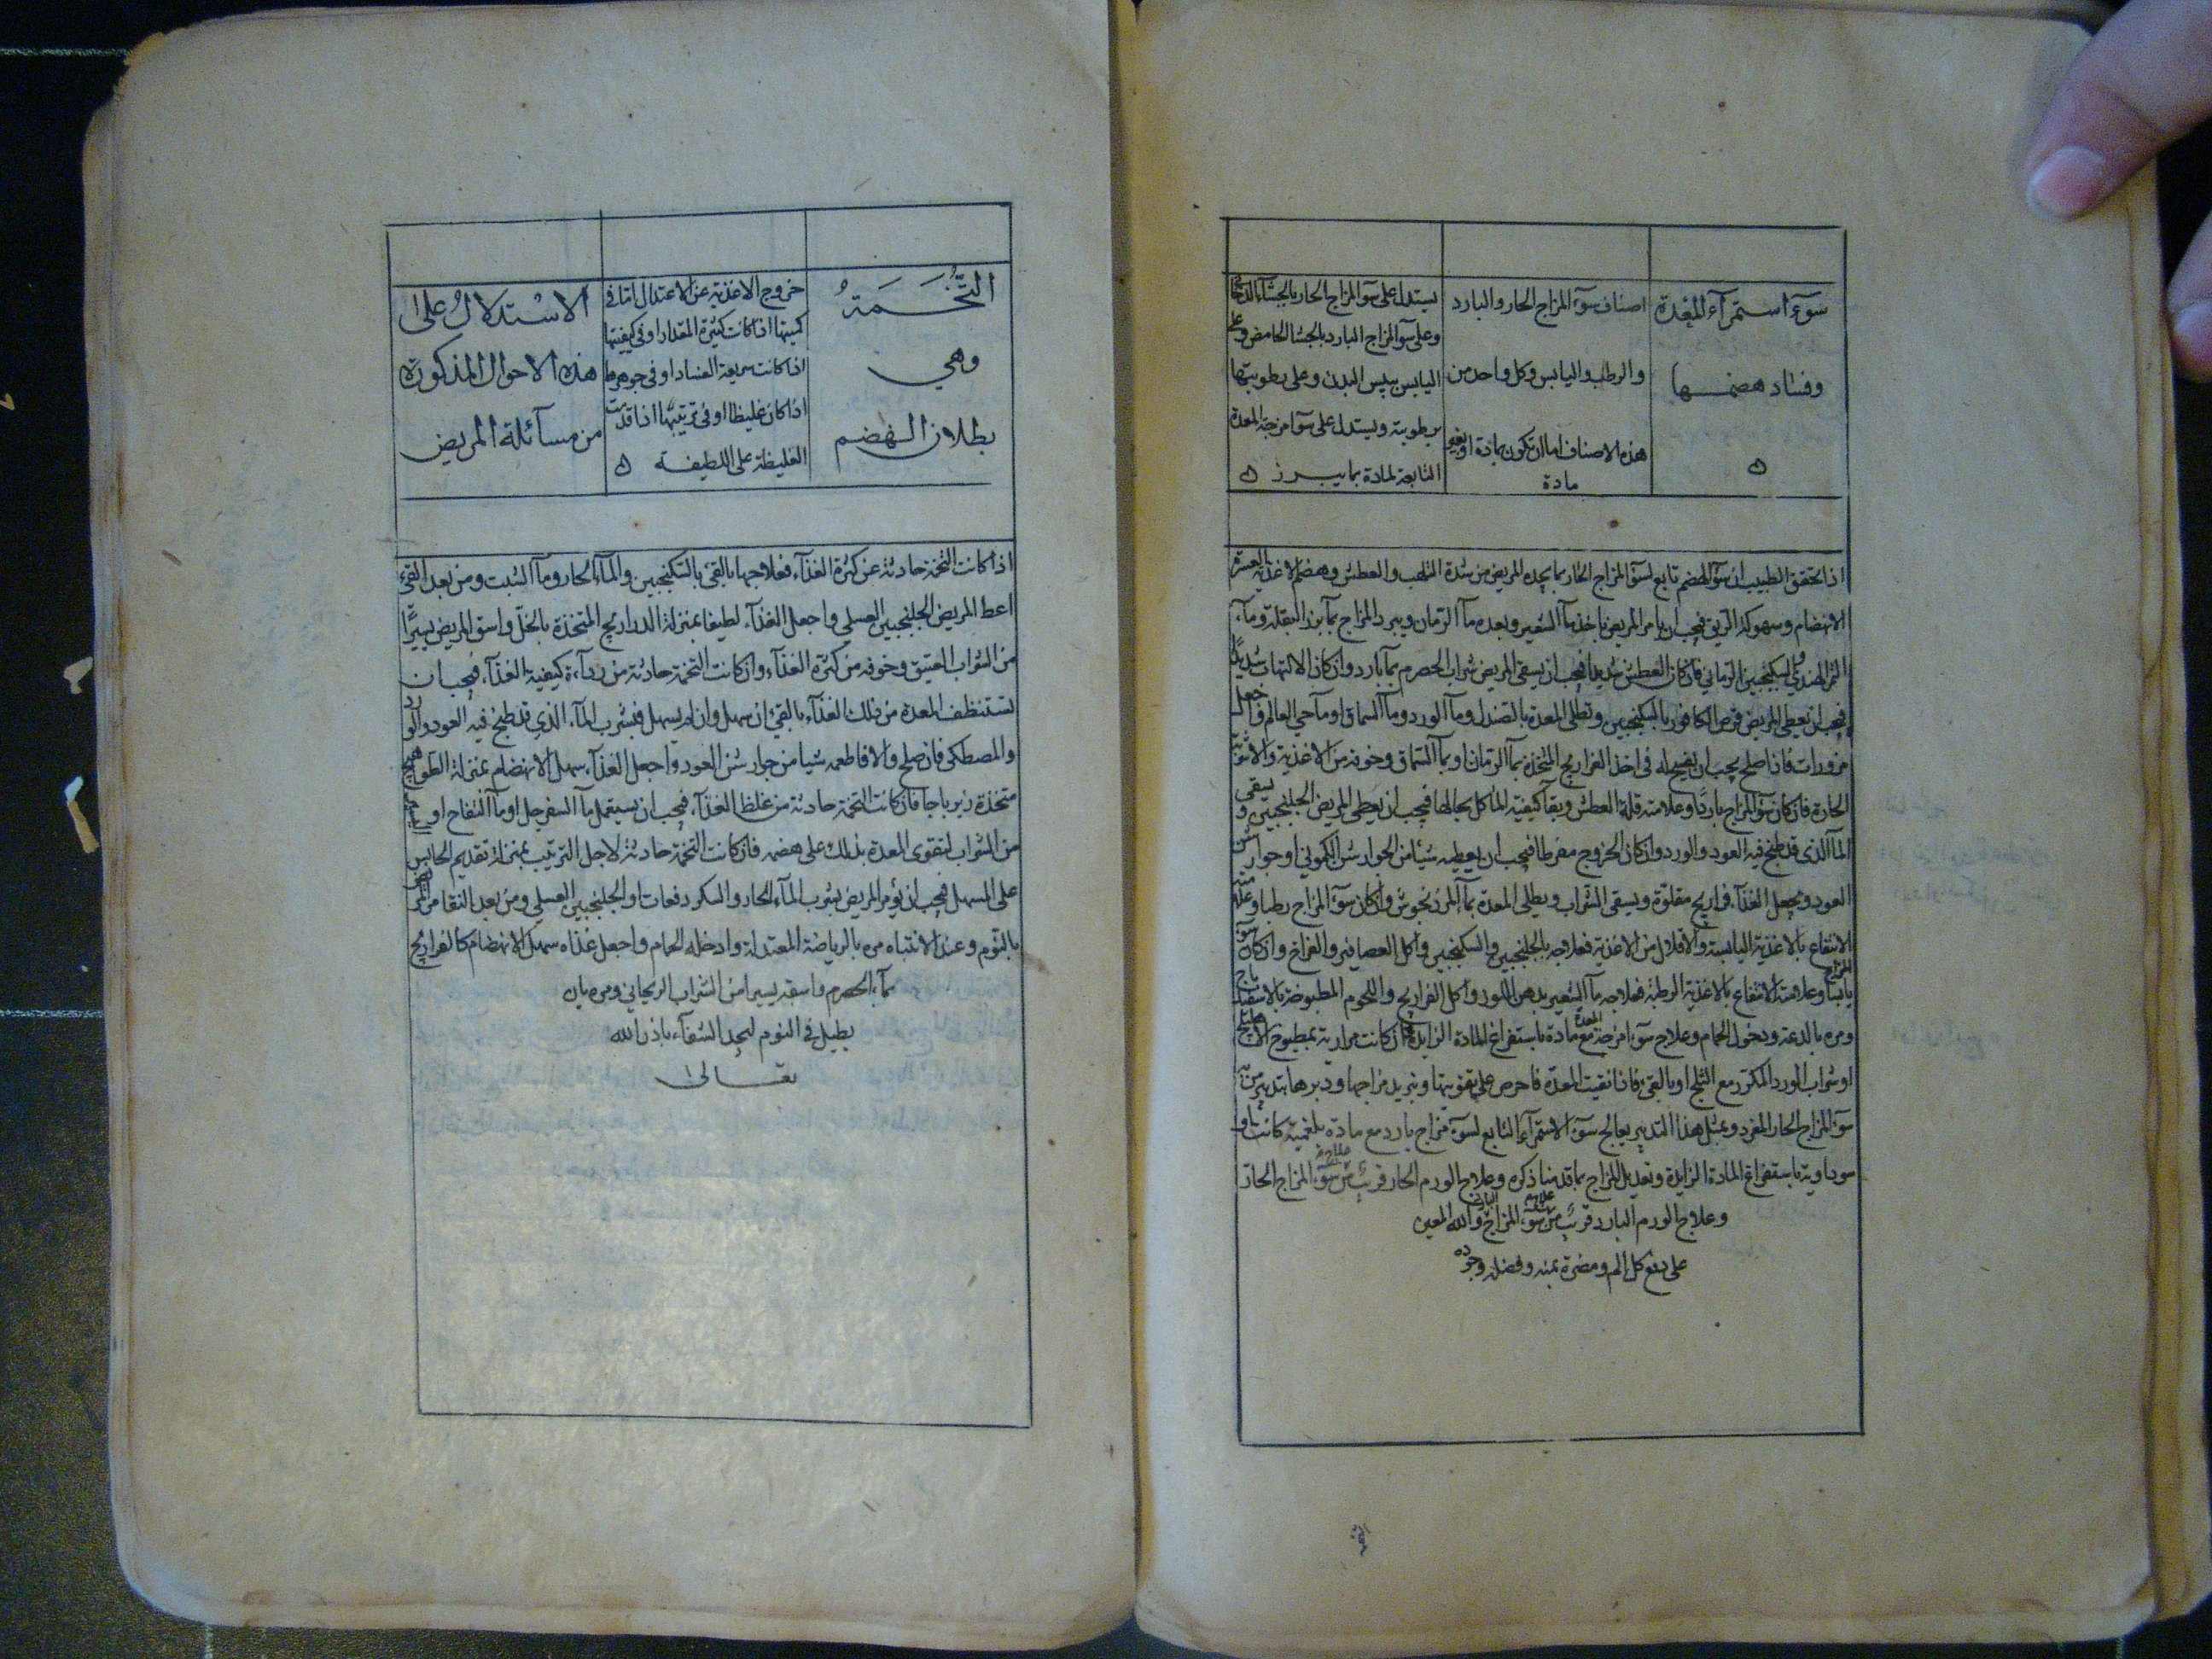 سوء استمرآء المعدة
وفساد هضمها
اصناف سوء المزاج الحار والبارد
والرطب واليابس وكل واحد من
هذه الاصناف اما ان تكون بمادة او بغير
مادة
يستدل على سوء المزاج الحار بالجشاء الدخانى
وعلى سوء المزاج البارد بالجشا الحامض وعلى
اليابس بيبس البدن وعلى رطوبتها
برطوبته ويستدل على سوء امزجة المعدة
التابعة لمادة بما يبرز
اذا تحقق الطبيب ان سوء الهضم تابع لسوء المزاج الحار بما يجده المريض من شدة التلهب والعطش وهضم الاغذية العسرة
الانهضام وسهوكة الريق فيجب ان يامر المريض باخذ مآ الشعير وبعده مآ الرمان ويبرد المزاج بمآ بزر البقلة ومآء
التمر الهندي والسكنجبين الرماني فان كان العطش شديدا فيجب ان يسقى المريض شراب الحصرم بمآ بارد وان كان الالتهاب شديدًا
فيجب ان يعطى المريض قرص الكافور بالسكنجبين وتطلى المعدة بالصندل ومآ الورد ومآ السماق او مآ حي العالم واجعل
مزورات فاذا صلح يجب ان يفسح له في اخذ الفراريج المتخذة بمآ الرمان او بمآ السماق وخوفه من الاغذية والاشربة
الحارة فان كان سوء المزاج باردًا وعلامته قلة العطش وبقآ كيفية المأكل بحالها فيجب ان يعطى المريض الجلنجبين ويسقى
المآ الذى قد طبخ فيه العود والورد وان كان الخروج مفرطا فيجب ان يعطيه شيئا من الجوارشن الكموني او جوارشن
العود ويجعل الغذآء فراريج مقلوّة ويسقى الشراب ويطلى المعدة بمآ المرزنجوش وان كان سوء المزاج رطبا وعلامته
الانتفاع بالاغذية اليابسة والاقلال من الاغذية فعلاجه بالجلنجبين والسكنجبين واكل العصافير والفراخ وان كان سوء المزاج
يابسا وعلامته الانتفاع بالاغذية الرطبة فعلاجه مآ الشعير بدهن اللوز واكل الفراريج واللحوم المطبوخة بالاسفيدباج
ومره بالدعة ودخول الحمام وعلاج سوء امزجة المعدة مع مادة باستفراغ المادة الزايدة فان كانت مرارية بمطبوخ الاهليلج
او شراب الورد المكرر مع الثلج او بالقئ فاذا نقيت المعدة فاحرص على تقويتها وتبريد مزاجها ودبرها بتدبير من به
سوء المزاج الحار المفرد وبمثل هذا التدبير يعالج سوء الاستمرآء التابع لسوء مزاج بارد مع مادة بلغمية كانت او
سوداوية باستفراغ المادة الزايدة وتعديل المزاج بما قدمنا ذكره وعلاج الورم الحار قريب من علاج سوء المزاج الحار
وعلاج الورم البارد قريب من علاج سوء المزاج البارد والله المعين
على دفع كل الم ومضرة بمنه وفضله وجوده
التُّخَمَةُ
وهي
بطلان الهضم
خروج الاغذية عن الاعتدال اما في
كميتها اذا كانت كثيرة المقدار او في كيفيتها
اذا كانت سريعة الفساد او في جوهرها
اذا كان غليظا او في ترتيبها اذا قدمت
الغليظة على اللطيفة
الاستدلالُ على
هذه الاحوال المذكورة
من مسآئلة المريض
اذا كانت التخمة حادثة عن كثرة الغذآء فعلاجها بالقئ بالسكنجبين والمآء الحار ومآ الشبت ومن بعد القئ
اعط المريض الجلنجبين العسلى واجعل الغذآء لطيفا بمنزلة الدراريج المتخذة بالخل واسق المريض يسيرًا
من الشراب العتيق وخوفه من كثرة الغذآء وان كانت التخمة حادثة من ردآءة كيفية الغذآء فيجب ان
تستنظف المعدة من ذلك الغذآء بالقئ ان سهل وان لم يسهل فبشرب المآء الذي قد طبخ فيه العود والورد
والمصطكى فان صلح والا فاطعمه شيا من جوارشن العود واجعل الغذآء سهل الانهضام بمنزلة الطياهيج
متخذة زيرباجا فان كانت التخمة حادثة من غلظ الغذآء فيجب ان يستعمل مآ السفرجل او مآ التفاح او
من الشراب لتقوى المعدة بذلك على هضمه فان كانت التخمة حادثة لاجل الترتيب بمنزلة تقديم الحابس
على المسهل فيجب ان يؤمر المريض بشرب المآء الحار والسكر دفعات او الجلنجبين العسلي ومن بعد النقا مر المريض
بالنوم وعند الانتباه مره بالرياضة المعتدلة وادخله الحمام واجعل غذاه سهل الانهضام كالفراريج
بمآء الحصرم واسقه يسيرا من الشراب الريحاني ومره بان
يطيل في النوم ليجد الشفآء باذن الله
تعالى